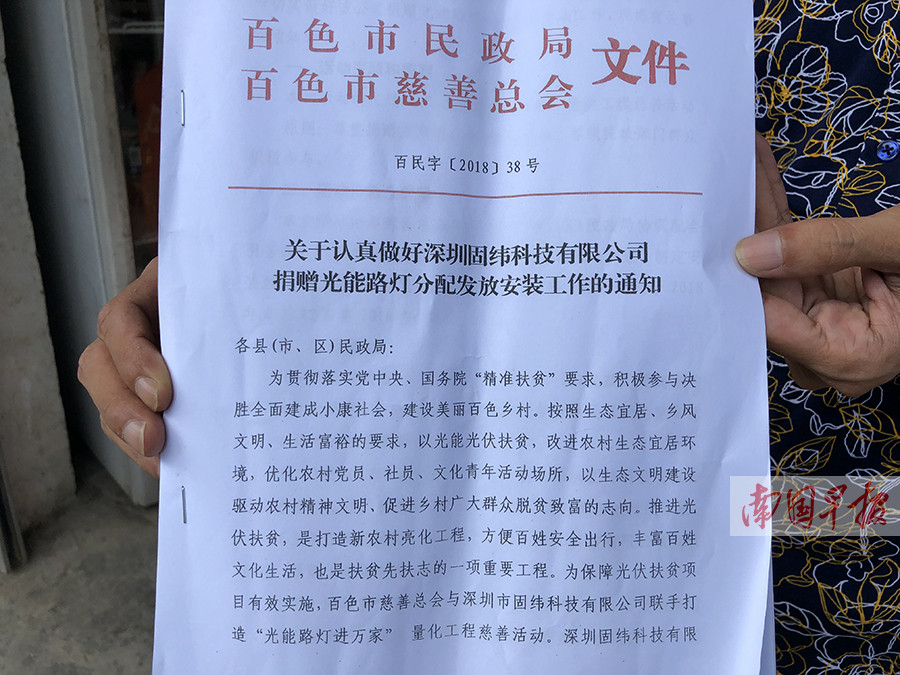 百色市民政局
百色市慈善总会
文件
百民字〔2018〕38号
关于认真做好深圳固纬科技有限公司
捐赠光能路灯分配发放安装工作的通知
各县(市、区)民政局：
为贯彻落实党中央、国务院“精准扶贫”要求，积极参与决
胜全面建成小康社会，建设美丽百色乡村。按照生态宜居、乡风
文明、生活富裕的要求，以光能光伏扶贫，改进农村生态宜居环
境，优化农村党员、社员、文化青年活动场所，以生态文明建设
驱动农村精神文明、促进乡村广大群众脱贫致富的志向。推进光
伏扶贫，是打造新农村亮化工程，方便百姓安全出行，丰富百姓
文化生活，也是扶贫先扶志的一项重要工程。为保障光伏扶贫项
目有效实施，百色市慈善总会与深圳市固纬科技有限公司联手打
造“光能路灯进万家” 量化工程慈善活动。深圳固纬科技有限
南国早报